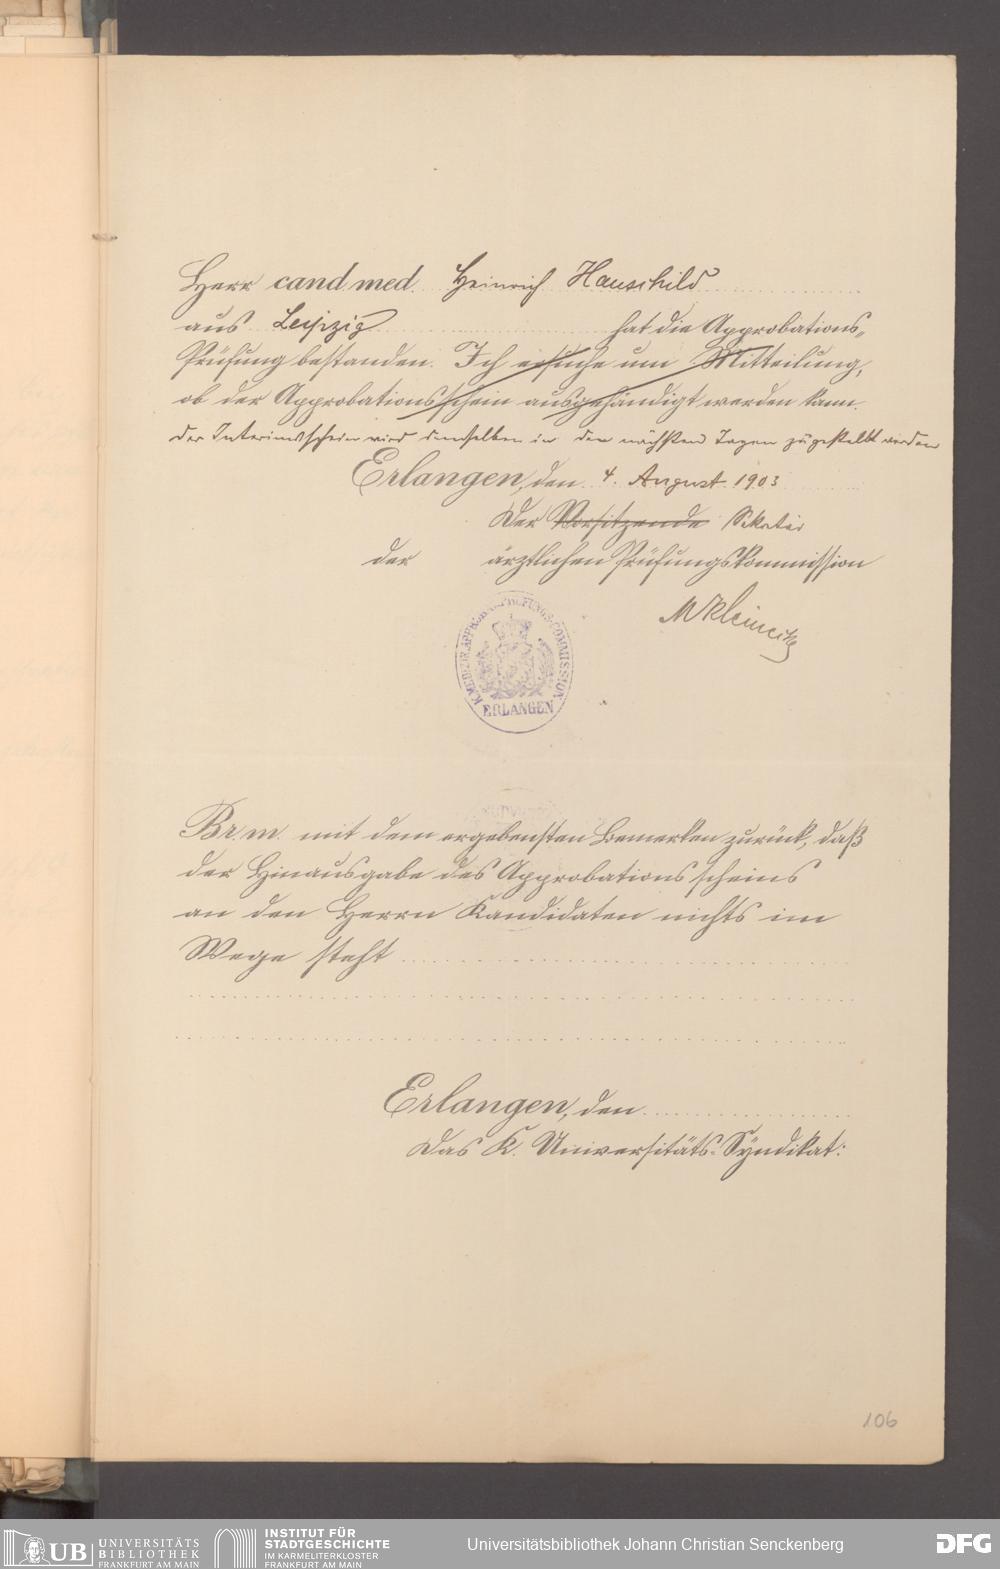 Herr cand med. Heinrich Hauschild
aus Leipzig hat die Approbations-
Prüfung bestanden. Ich ersuche um Mitteilung,
ob der Approbationsschein ausgehändigt werden kann.
Der Interimsschein wird demselben in den nächsten Tagen zugestellt werden
Erlangen, den 4. August 1903
Der Vorsitzende Sekretär
der ärztlichen Prüfungskommission
K. MEDIZIN. APPROB. PRÜFUNGS-COMMISSION
ERLANGEN
Br. m. mit dem ergebensten Bemerken zurück, daß
der Hinausgabe des Approbationsscheins
an den Herrn Kandidaten nichts im
Wege steht
Erlangen, den
Das K. Universitäts-Syndikat:
106
UB UNIVERSITÄTS
BIBLIOTHEK
FRANKFURT AM MAIN
INSTITUT FÜR
STADTGESCHICHTE
IM KARMELITERKLOSTER
FRANKFURT AM MAIN
Universitätsbibliothek Johann Christian Senckenberg
DFG